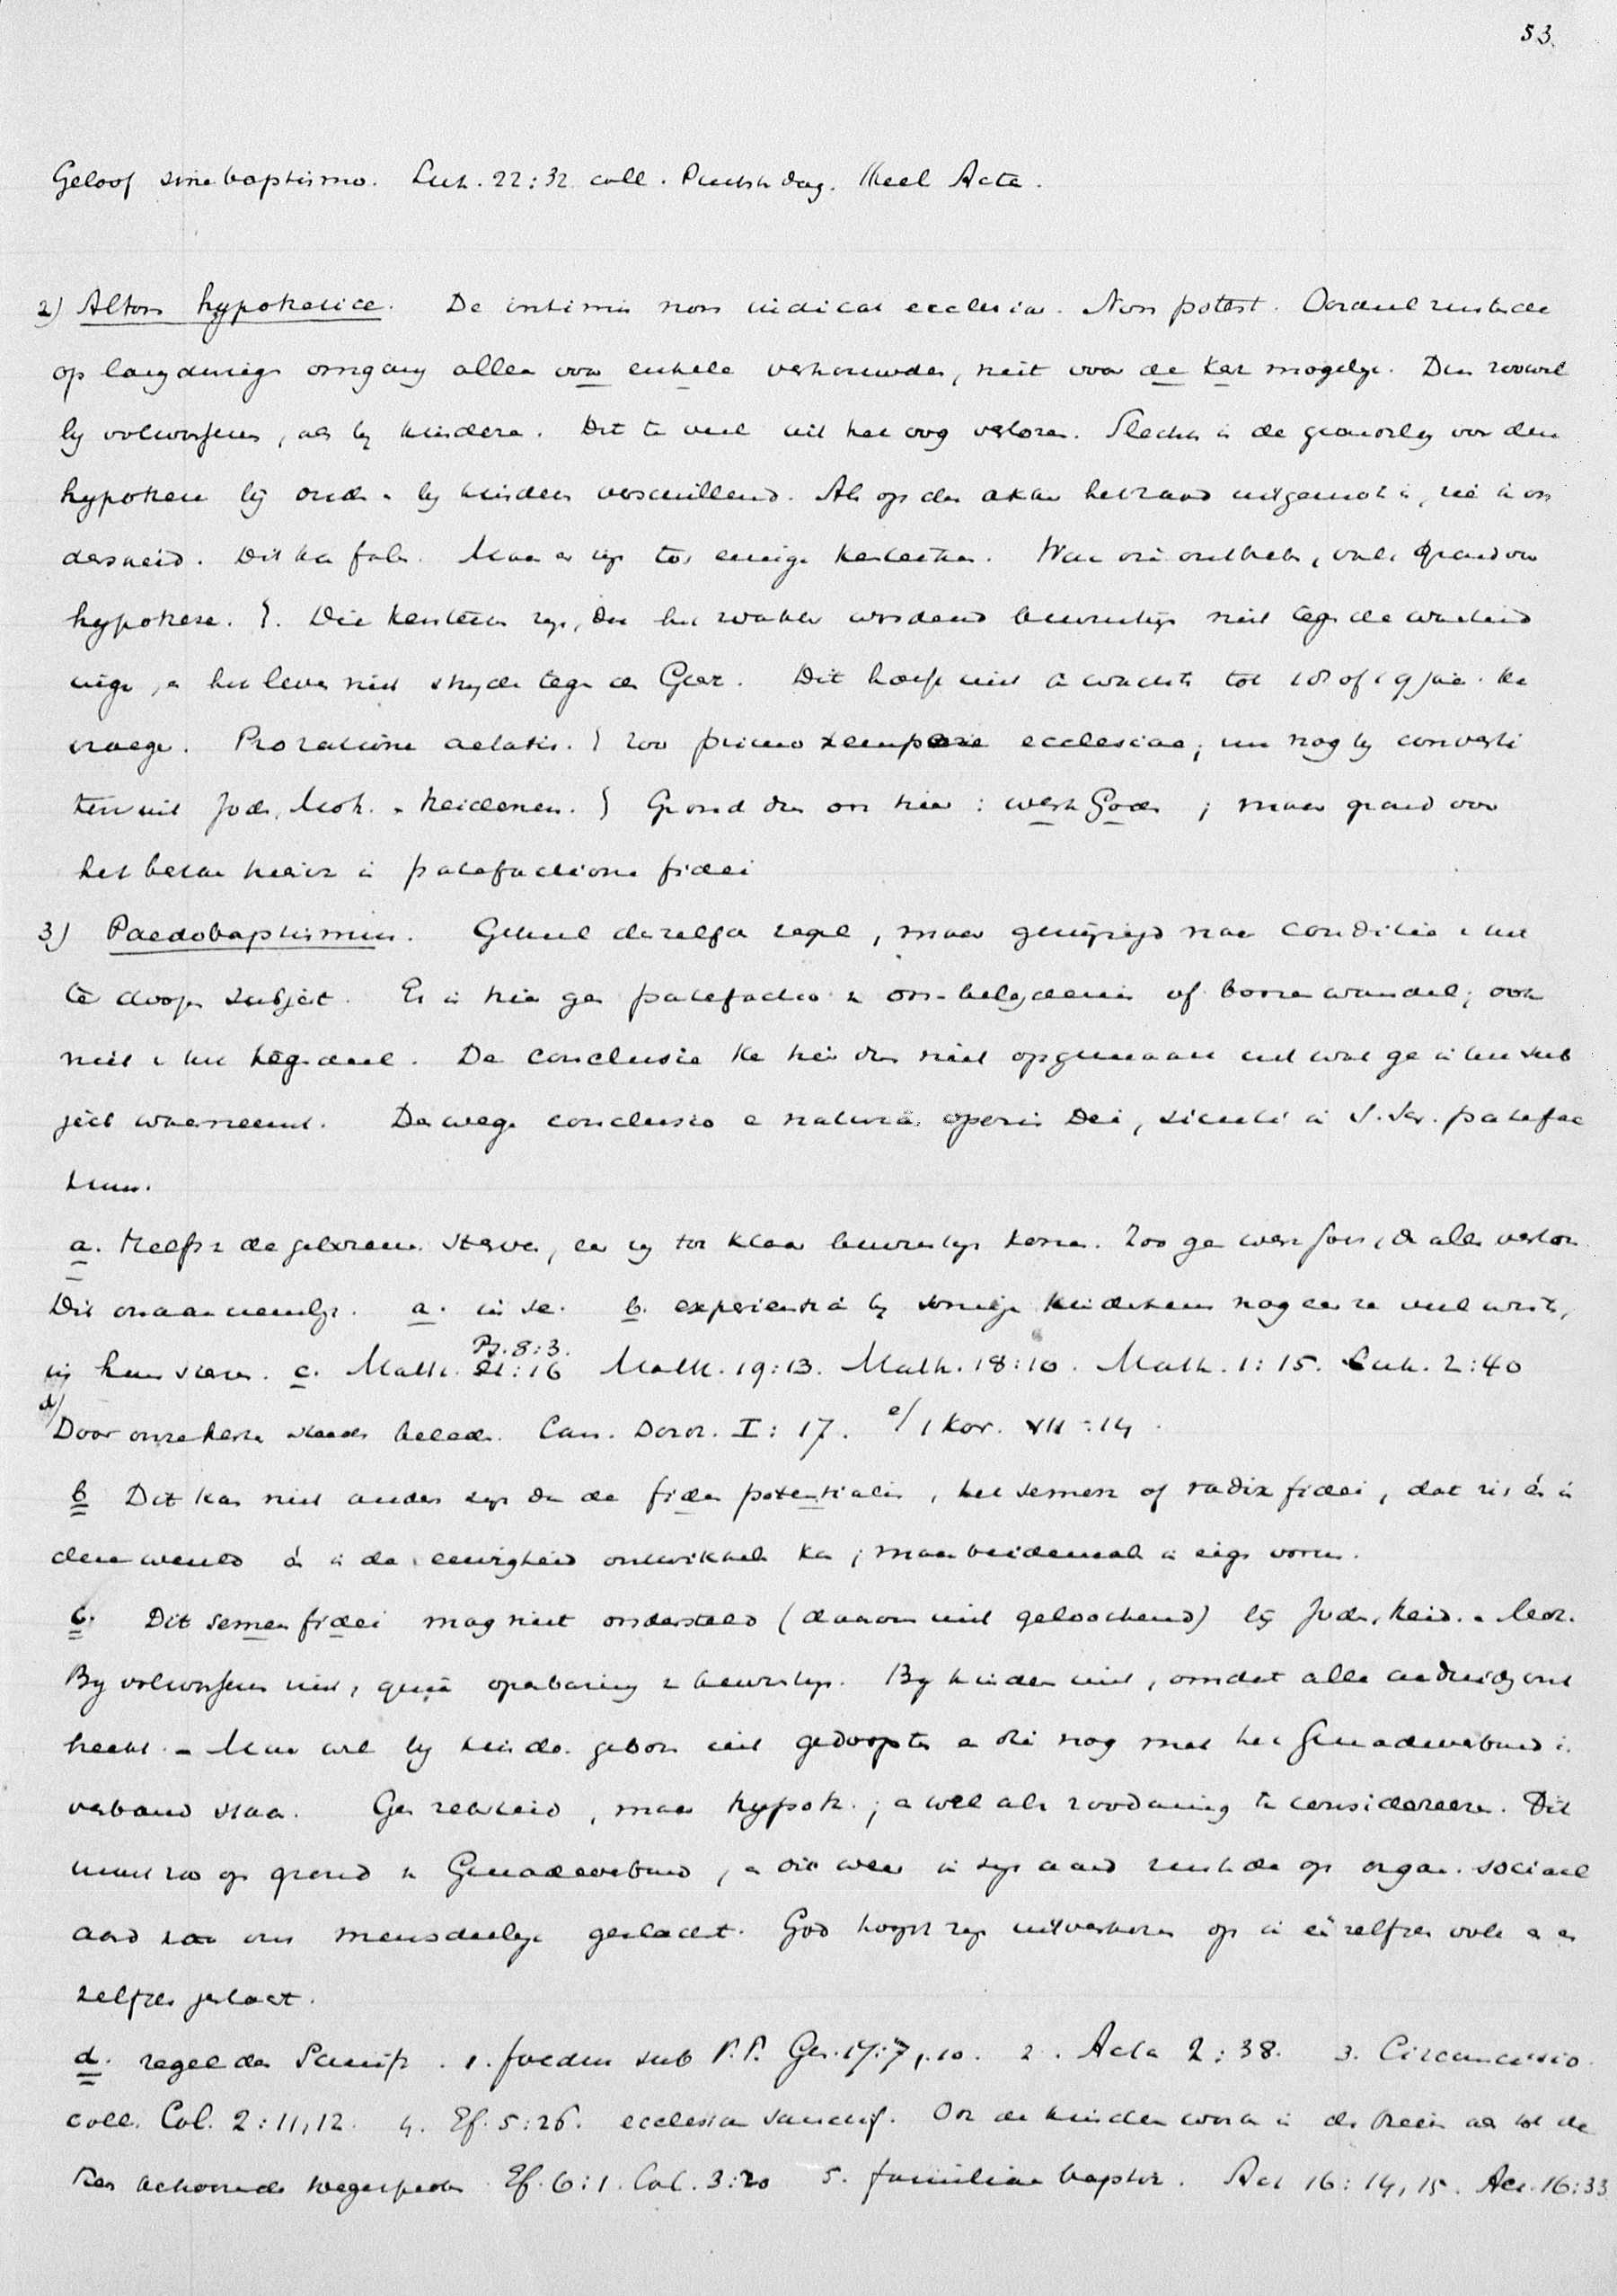 53.
Geloof sine baptismo. Luk. 22:32 coll. Pinksterdag. Heel Acta.
2) Altoos hypothetice. De intimis non iudicat ecclesia. Non potest. Oordeel rustende
op langdurige omgang alleen voor enkele vertrouwden, niet voor de Kerk mogelijk. Dus zoowel
bij volwassenen, als bij kinderen. Dit te veel uit het oog verloren. Slechts is de grond voor den
hypothese bij ouden en bij kinderen verschillend. Als op den akker het zaad uitgestrooid is, zie ik
. Dit kan falen. Maar er zijn toch eenige kenteekenen. Waar die ontbreken, valt grond voor
hypothese. Die kenteekenen zijn, dat het wakker wordend bewustzijn niet tegen de waarheid
, en het leven niet strijde tegen den Geest. Dit hoeft niet te wachten tot 18 of 19 jaar. Kan
vroeger. Pro ratione aetatis. Zoo primo tempore ecclesiae; nu nog bij converti
ten uit Joden, Moh. en heidenen. Grond dus ook hier: werk Gods; maar grond voor
het in patefactione fidei
3) Paedobaptismus. Geheel dezelfde regel, maar gewijzigd naar conditie v. het
te doopen subject. Er is hier geen patefactio in belijdenis of wandel; ook
niet v. het tegendeel. De conclusie kan hier dus niet opgemaakt uit wat ge in het sub
ject waarneemt. Derwege conclusio e natura operis Dei, sicuti in S. Scr. patefac
tum.
a. Helft der geborenen sterven, eer zij tot klaar bewustzijn komen. Zoo geen werk Gods, dan allen verloren
Dit onaannemelijk. a. in se. b. experientia bij sommige kinderkens nog eer ze veel wisten,
bij hun sterven. c. Matth. 21:16 Ps. 8:3. Matth. 19:13. Matth. 18:10. Matth. 1:15. Luk. 2:40
d/ Door onze kerken steeds beleden. Can. Dordr. I: 17. e/ 1 Kor. VII:14.
b Dit kan niet anders zijn dan de fides potentialis, het semen of radix fidei, dat zich én in
deze wereld én in de eeuwigheid ontwikkelen kan; maar beidemaal in eigen vorm.
c. Dit semen fidei mag niet ondersteld (daarom niet geloochend) bij Joden, Heid. en Moh.
Bij volwassenen niet, quia openbaring in bewustzijn. Bij kinderen niet, omdat alle aanduiding ont
breekt. - Maar wel bij kinderen geboren uit gedoopten en die nog met het Genadeverbond in
verband staan. Geen zekerheid, maar hypoth.; en wel als zoodanig te considereeren. Dit
moet zoo op grond v. Genadeverbond, en dit weer in zijn aard rustende op organ. sociaal
aard van ons menschelijk geslacht. God hoopt zijn uitverkoren op in eenzelfden volk en een
zelfde geslacht.
d. regel der Schrift. 1. foedus sub V.T. Gen. 17:7,10. 2. Acta 2:38. 3. Circumcisio.
coll. Col. 2:11,12. 4. Ef. 5:26. ecclesia sanctif. Ook de kinderen worden in de brieven als tot de
Kerk behoorende toegesproken Ef. 6:1. Col. 3:20 5. familiae baptiz. Act 16:14,15. Act. 16:33